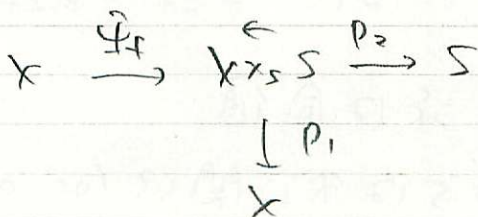 X \xrightarrow{\overleftarrow{\Psi}_f} X \overleftarrow{\times}_S S \xrightarrow{p_2} S
↓ p_1
X